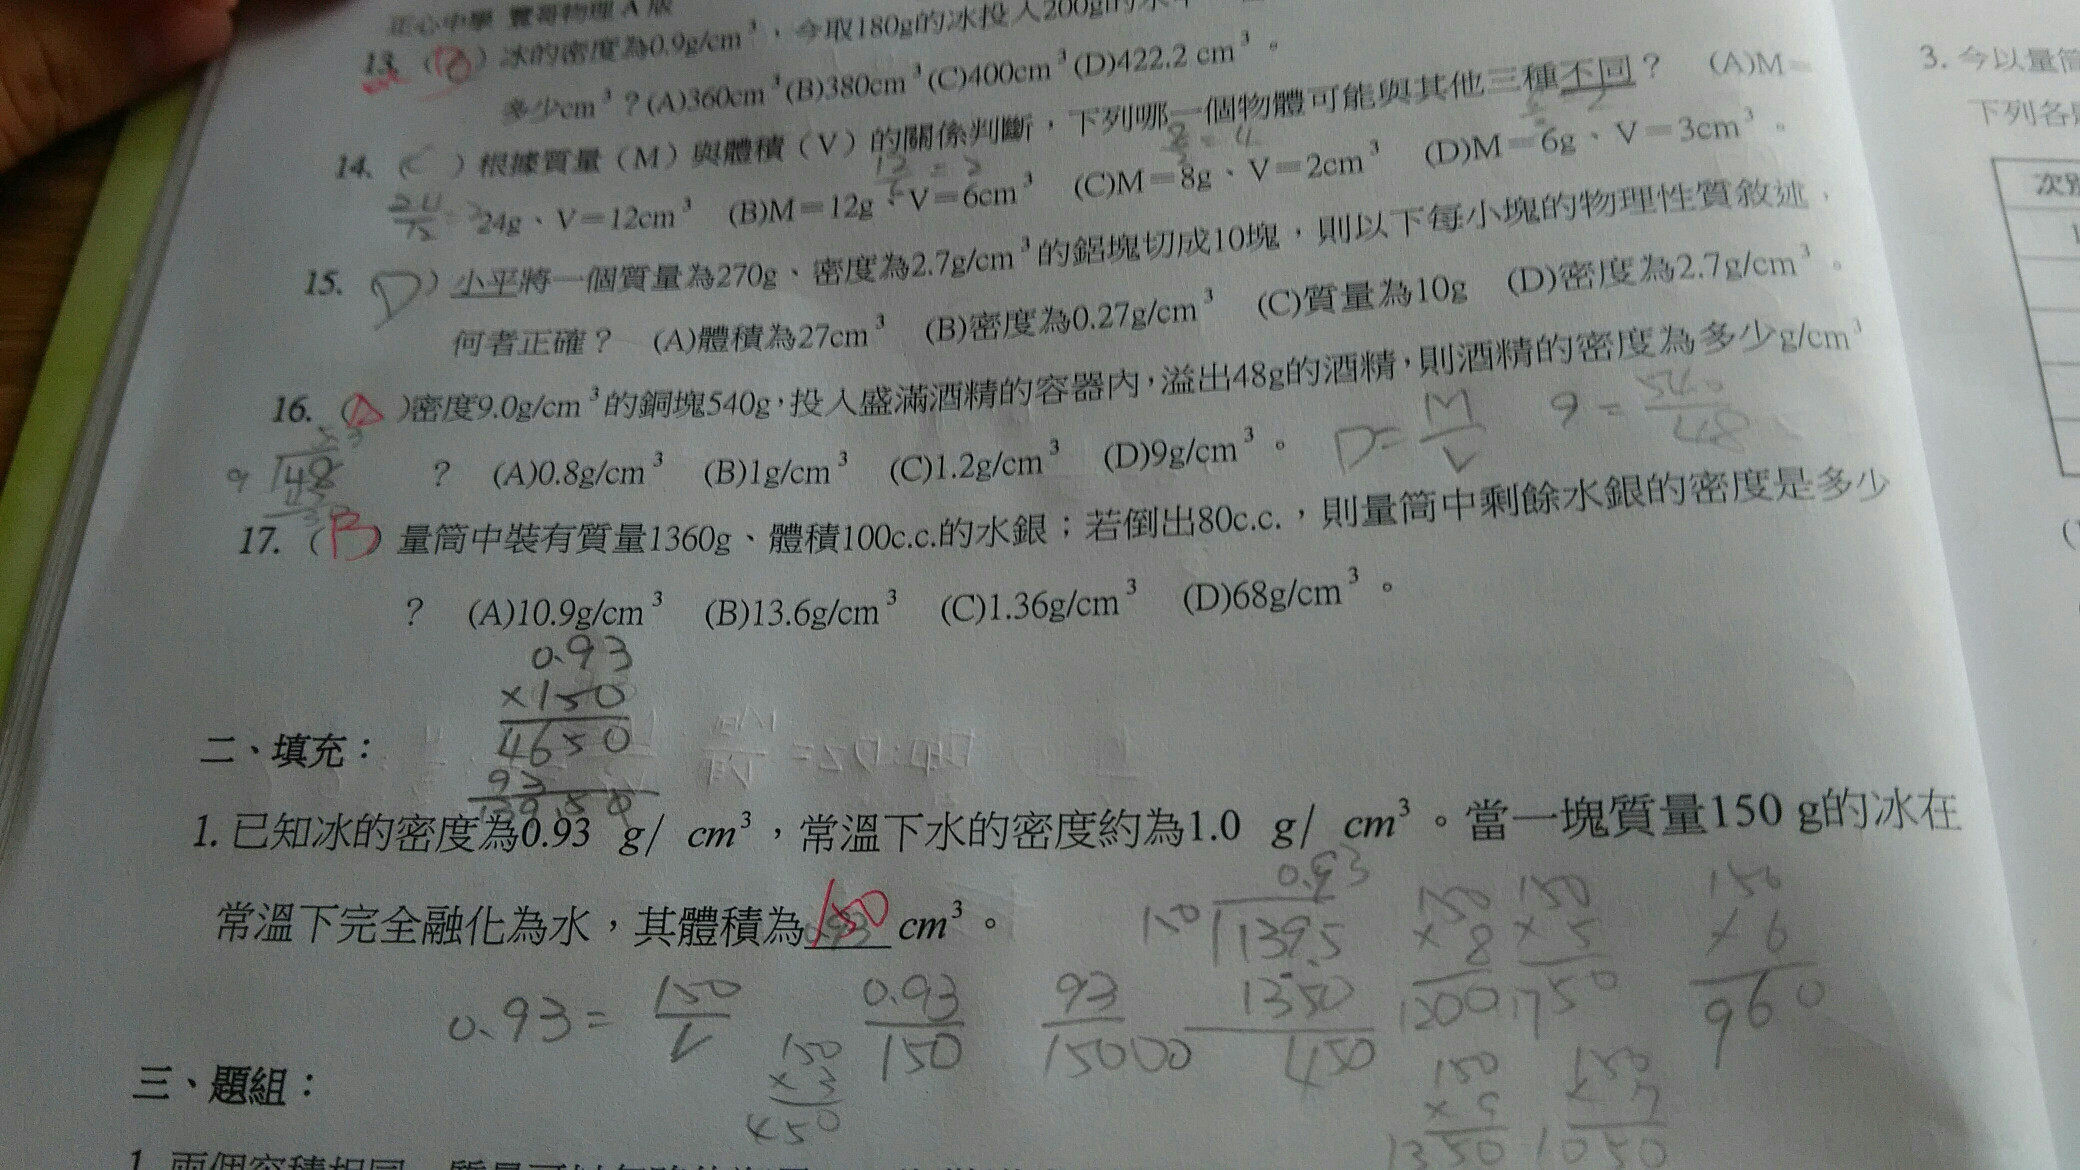 正心中學 豐哥物理 A 版
13. (B) 冰的密度為0.9g/cm³，今取180g的冰投入200g的水中
多少cm³？(A)360cm³(B)380cm³(C)400cm³(D)422.2 cm³。
14. (C) 根據質量（M）與體積（V）的關係判斷，下列哪一個物體可能與其他三種不同？ (A)M＝
24g、V＝12cm³ (B)M＝12g、V＝6cm³ (C)M＝8g、V＝2cm³ (D)M＝6g、V＝3cm³。
15. (D) 小平將一個質量為270g、密度為2.7g/cm³的鋁塊切成10塊，則以下每小塊的物理性質敘述，
何者正確？ (A)體積為27cm³ (B)密度為0.27g/cm³ (C)質量為10g (D)密度為2.7g/cm³。
16. (A)密度9.0g/cm³的銅塊540g，投入盛滿酒精的容器內，溢出48g的酒精，則酒精的密度為多少g/cm³
？ (A)0.8g/cm³ (B)1g/cm³ (C)1.2g/cm³ (D)9g/cm³。
D=M/V 9=540/48
9 48
17. (B) 量筒中裝有質量1360g、體積100c.c.的水銀；若倒出80c.c.，則量筒中剩餘水銀的密度是多少
？ (A)10.9g/cm³ (B)13.6g/cm³ (C)1.36g/cm³ (D)68g/cm³。
0.93
×150
4650
93
139.50
二、填充：
1. 已知冰的密度為0.93 g/ cm³，常溫下水的密度約為1.0 g/ cm³。當一塊質量150 g的冰在
常溫下完全融化為水，其體積為150cm³。
0.93
150 139.5
1350
450
150
×8
1200
150
×5
1750
150
×6
960
0.93=150/V
0.93/150
93/15000
150
×3
450
150
×9
1350
150
×7
1050
三、題組：
3. 今以量筒
下列各
次別